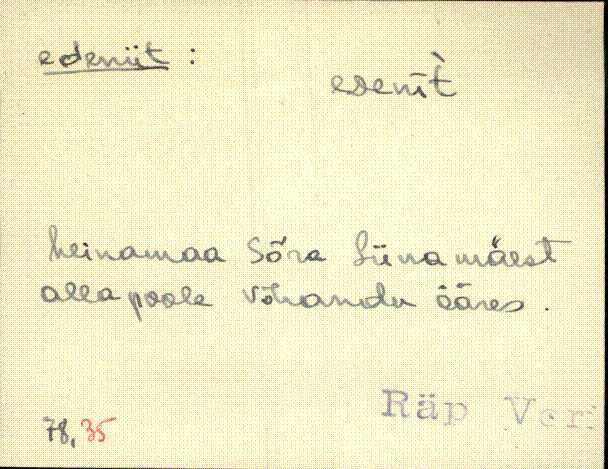 edeniit :
eᴅenīt̀
heinamaa Sõra Liinamäest
alla poole Võhandu ääres .
78, 35
Räp